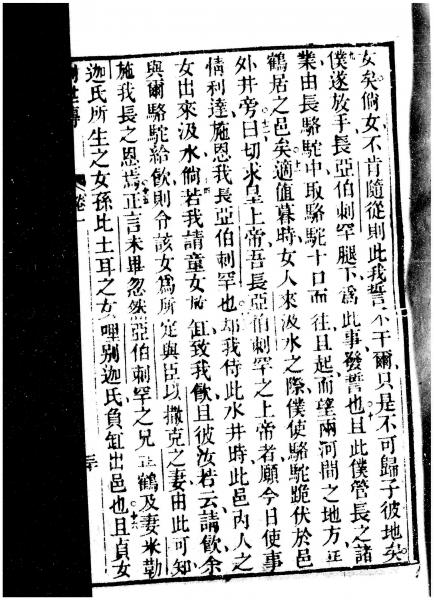 女矣倘女不肯隨從則此我誓不干爾只是不可歸子彼地矣
僕遂放手長亞伯刺罕腿下爲此事發誓也且此僕管長之諸
業由長駱駝中取駱駝十口而往且起而望兩河間之地方
鶴居之邑矣適值暮時女人來汲水之際僕使駱駝跪伏於邑
外井旁曰切求皇上帝吾長亞伯刺罕之上帝者願今日使事
情利達施恩我長亞伯刺罕也却我侍此水井時此邑內人之
女出來汲水倘若我請童女放缸致我飲且彼汝若云請飲余
與爾駱駝給飲則令該女爲所定與臣以撒克之妻由此可知
施我長之恩焉正言未畢忽然亞伯刺罕之兄鶴及妻米勒
迦氏所生之女孫比土耳之女哩別迦氏負缸出邑也且貞女
卷一
三